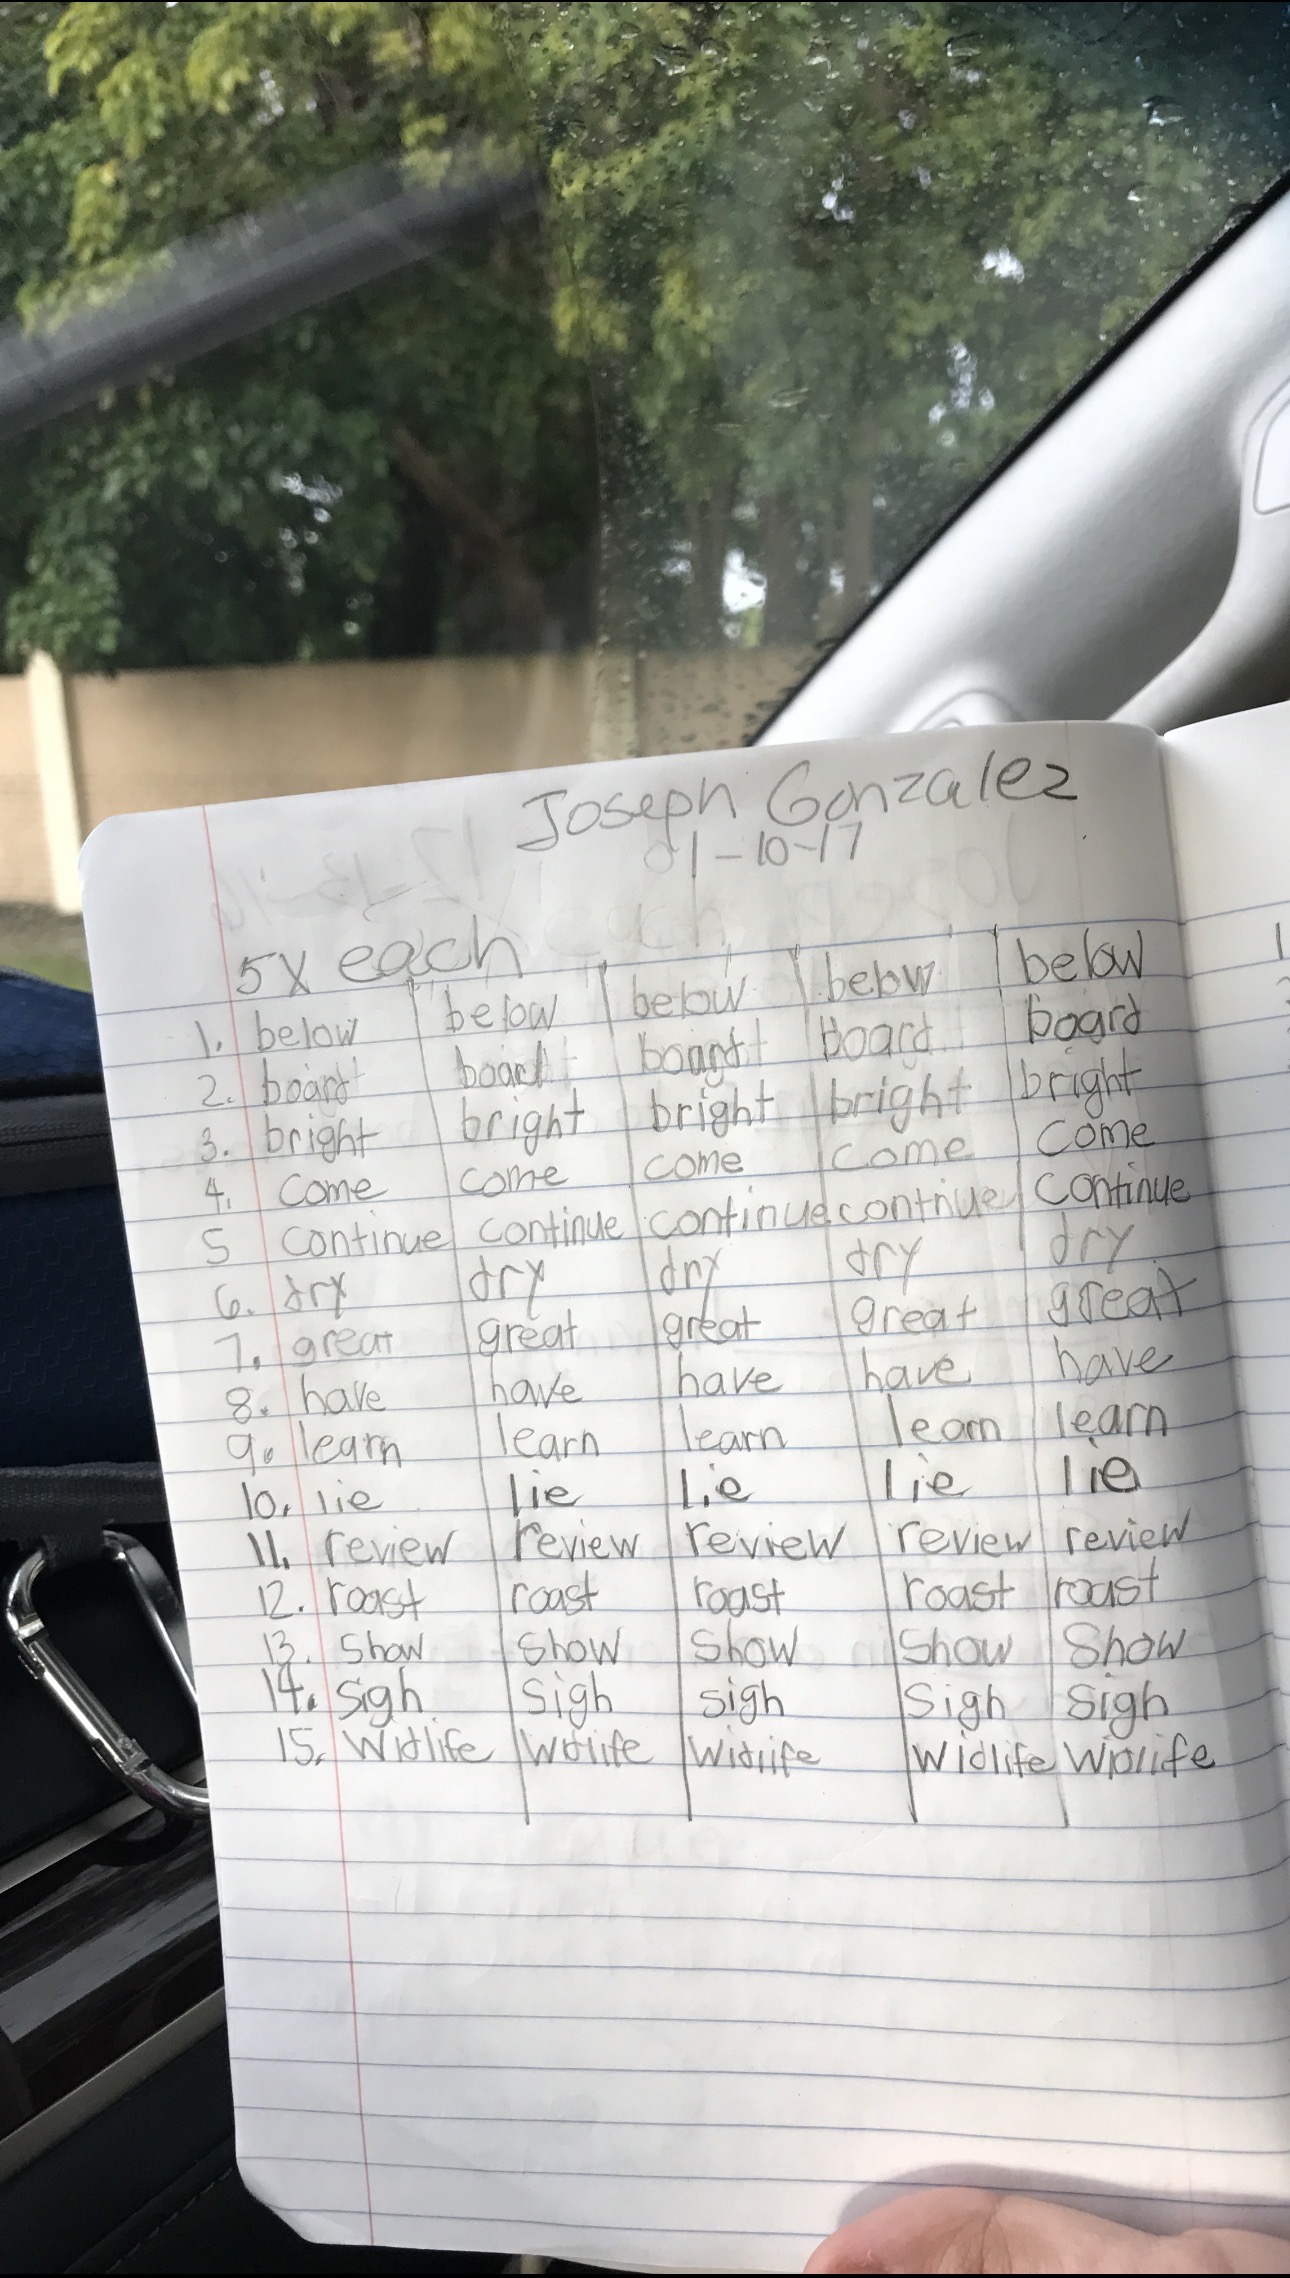 Joseph Gonzalez
01-10-17
5X each
1. below below below below below
2. board board board board board
3. bright bright bright bright bright
4. come come come come come
5 continue continue continue contniue continue
6. dry dry dry dry dry
7. great great great great great
8. have have have have have
9. learn learn learn learn learn
10. lie lie lie lie lie
11. review review review review review
12. roast roast roast roast roast
13. Show Show Show Show Show
14. Sigh Sigh sigh Sigh Sigh
15. Widlife Widlife Widlife Widlife Widlife